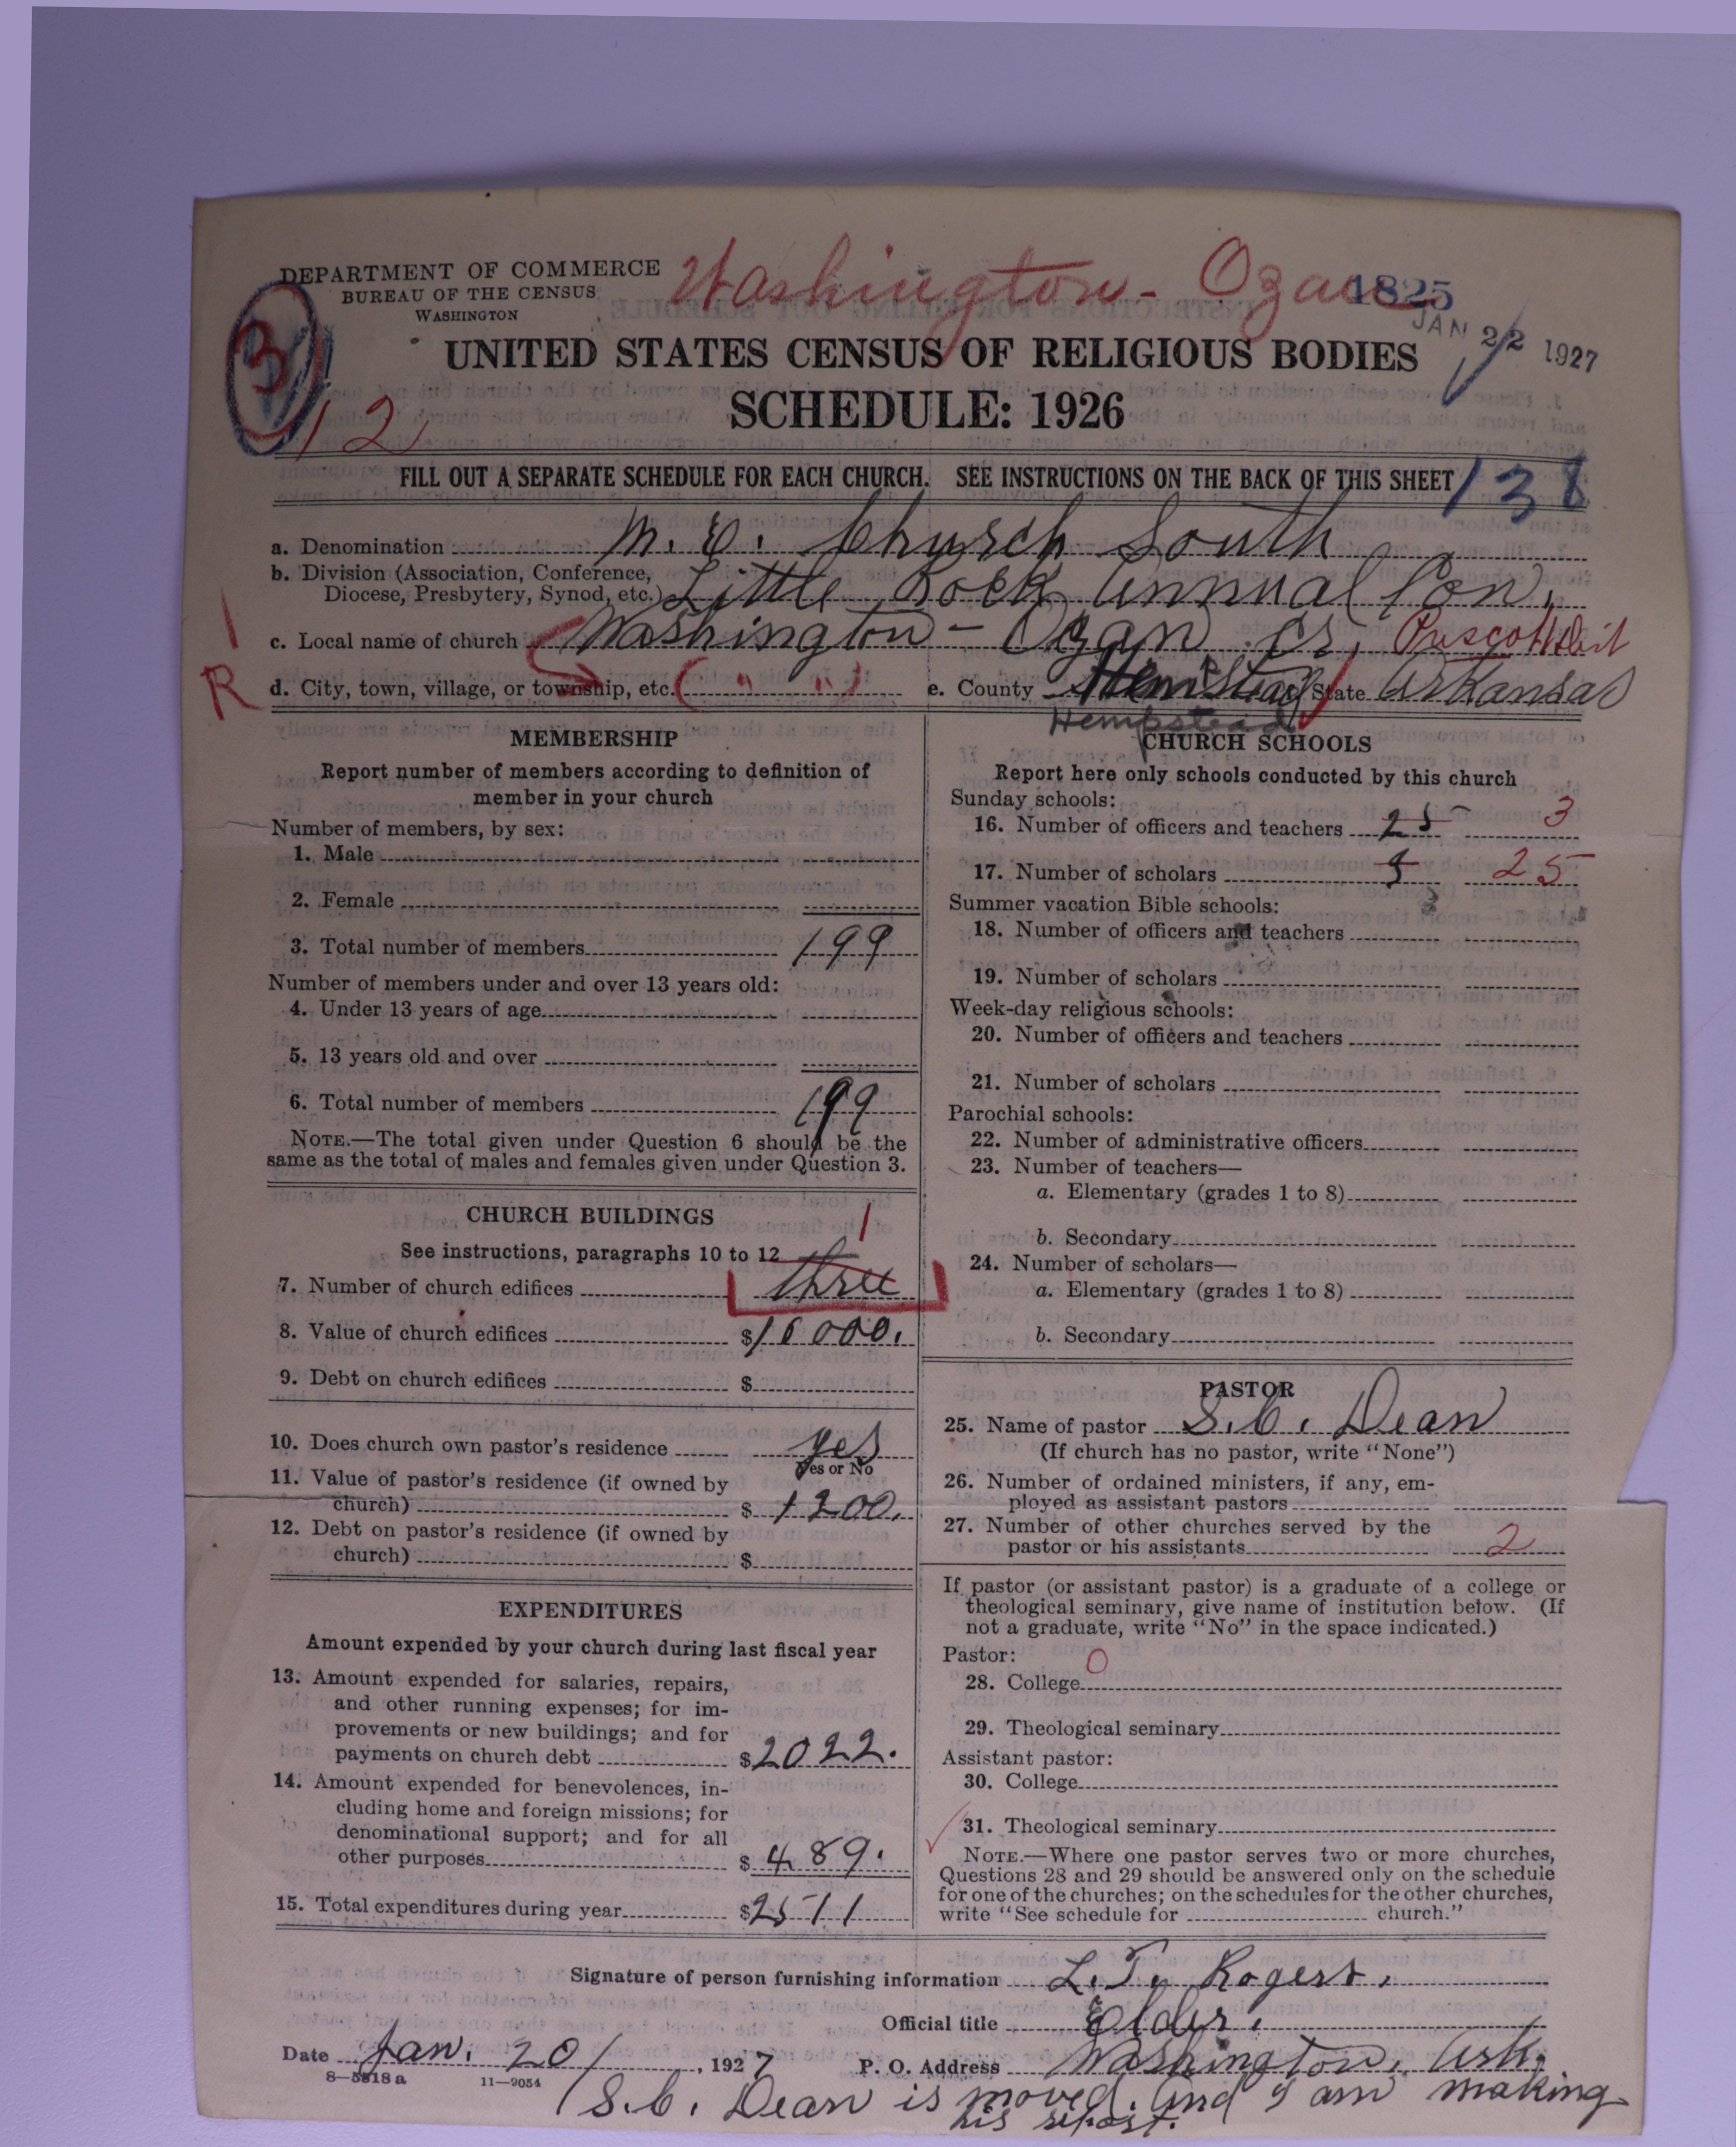 DEPARTMENT OF COMMERCE
BUREAU OF THE CENSUS
WASHINGTON
Washington - Ozan
1825
JAN 22 1927
3
12
UNITED STATES CENSUS OF RELIGIOUS BODIES
SCHEDULE: 1926
FILL OUT A SEPARATE SCHEDULE FOR EACH CHURCH. SEE INSTRUCTIONS ON THE BACK OF THIS SHEET
138
a. Denomination M. E. Church South
b. Division (Association, Conference,
Diocese, Presbytery, Synod, etc.) Little Rock Annual Con.
c. Local name of church Washington - Ozan Cr. Prescott Dist
R d. City, town, village, or township, etc. ( " " ) e. County Hempstead State Arkansas
Hempstead
MEMBERSHIP
Report number of members according to definition of
member in your church
Number of members, by sex:
1. Male
2. Female
3. Total number of members 199
Number of members under and over 13 years old:
4. Under 13 years of age
5. 13 years old and over
6. Total number of members 199
NOTE.—The total given under Question 6 should be the
same as the total of males and females given under Question 3.
CHURCH BUILDINGS
1
See instructions, paragraphs 10 to 12
7. Number of church edifices three
8. Value of church edifices $16000.
9. Debt on church edifices $
10. Does church own pastor's residence yes
Yes or No
11. Value of pastor's residence (if owned by
church) $ 1200.
12. Debt on pastor's residence (if owned by
church) $
EXPENDITURES
Amount expended by your church during last fiscal year
13. Amount expended for salaries, repairs,
and other running expenses; for im-
provements or new buildings; and for
payments on church debt $2022.
14. Amount expended for benevolences, in-
cluding home and foreign missions; for
denominational support; and for all
other purposes $489.
15. Total expenditures during year $2511
CHURCH SCHOOLS
Report here only schools conducted by this church
Sunday schools:
16. Number of officers and teachers 25 3
17. Number of scholars 25
Summer vacation Bible schools:
18. Number of officers and teachers
19. Number of scholars
Week-day religious schools:
20. Number of officers and teachers
21. Number of scholars
Parochial schools:
22. Number of administrative officers
23. Number of teachers—
a. Elementary (grades 1 to 8)
b. Secondary
24. Number of scholars—
a. Elementary (grades 1 to 8)
b. Secondary
PASTOR
25. Name of pastor S. C. Dean
(If church has no pastor, write "None")
26. Number of ordained ministers, if any, em-
ployed as assistant pastors
27. Number of other churches served by the
pastor or his assistants 2
If pastor (or assistant pastor) is a graduate of a college or
theological seminary, give name of institution below. (If
not a graduate, write "No" in the space indicated.)
Pastor: 0
28. College
29. Theological seminary
Assistant pastor:
30. College
31. Theological seminary
NOTE.—Where one pastor serves two or more churches,
Questions 28 and 29 should be answered only on the schedule
for one of the churches; on the schedules for the other churches,
write "See schedule for church."
Signature of person furnishing information L. T. Rogers.
Official title Elder.
Date Jan. 20, 1927 P. O. Address Washington, Ark.
8—5818a 11—9054
S. C. Dean is moved. And I am making
his report.